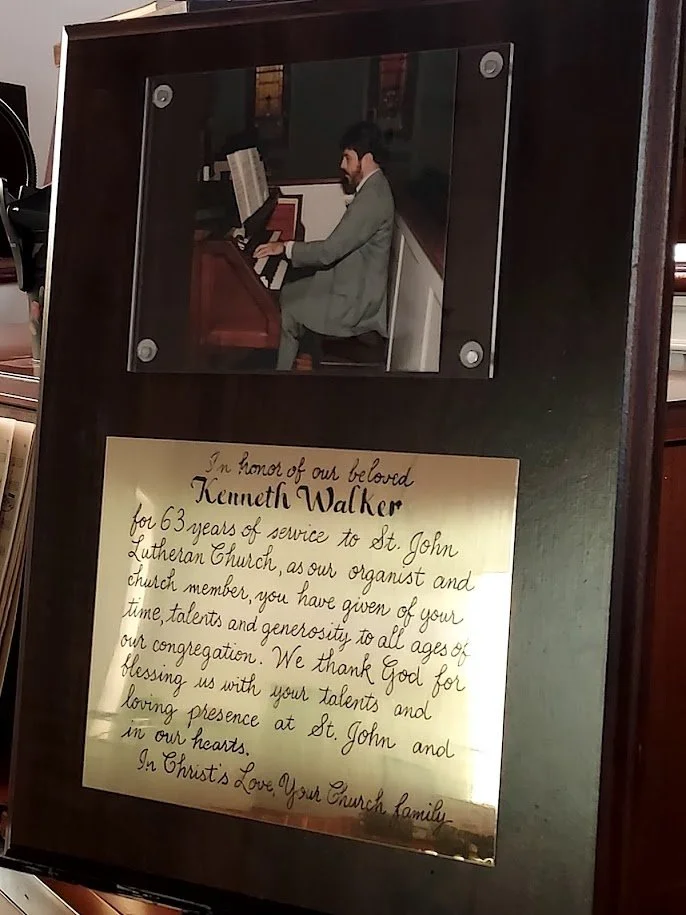 In honor of our beloved
Kenneth Walker
for 63 years of service to St. John
Lutheran Church, as our organist and
church member, you have given of your
time, talents and generosity to all ages of
our congregation. We thank God for
blessing us with your talents and
loving presence at St. John and
in our hearts.
In Christ's Love, Your Church family